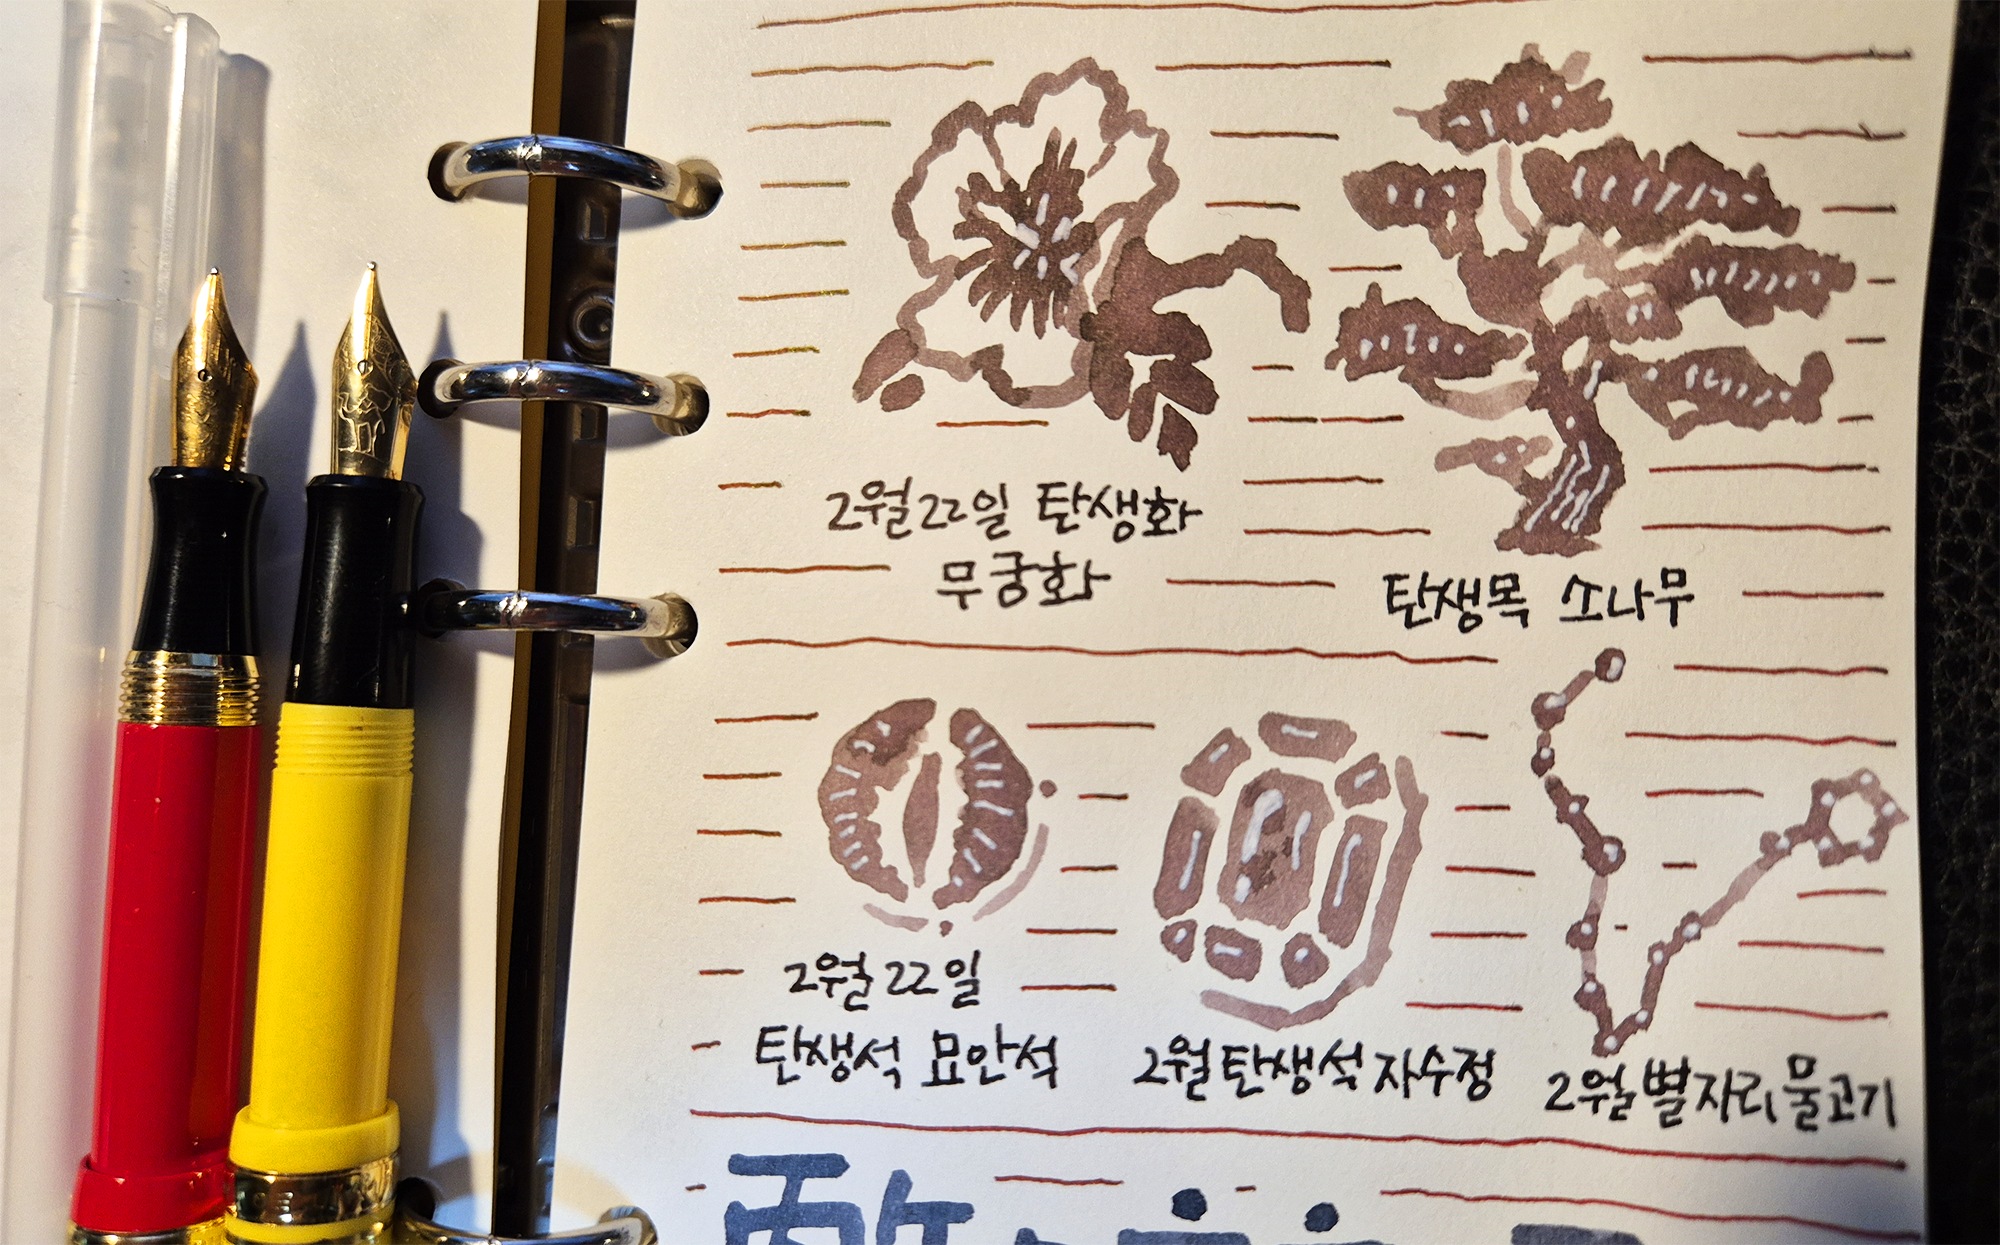 2월 22일 탄생화
무궁화
탄생목 소나무
2월 22일
탄생석 묘안석
2월 탄생석 자수정
2월 별자리 물고기